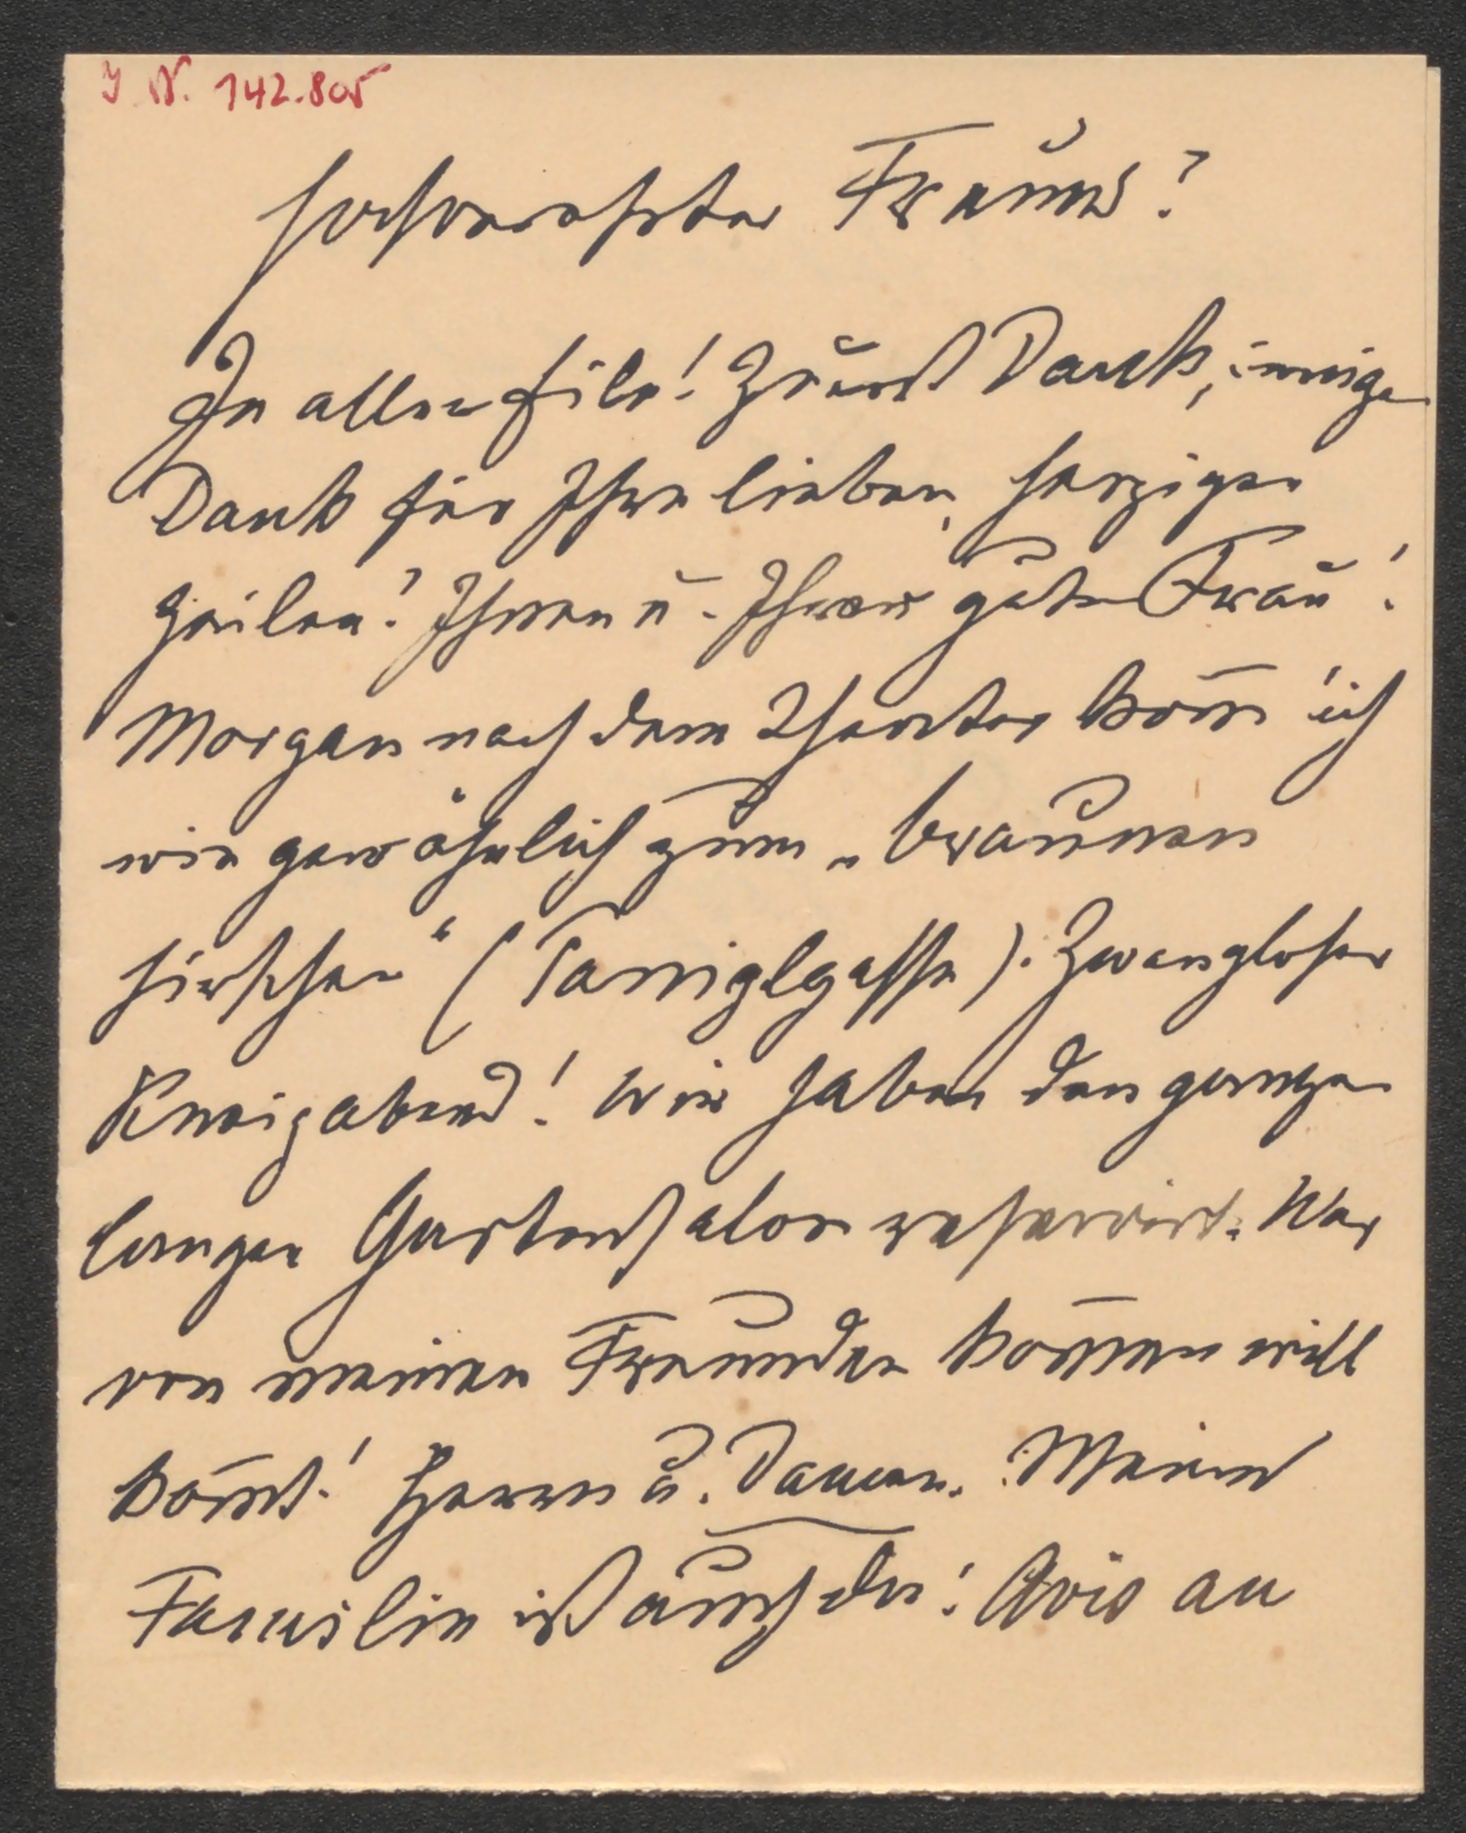 I. N. 142.805
Hochverehrter Freund!
In aller Eile! Zuerst Dank, innigen
Dank für Ihre lieben, herzigen
Zeilen! Ihnen u. Ihrer guten Frau!
Morgen nach dem Theater kom̄ ich
wie gewöhnlich zum „braunen
Hirschen“ (Tannigl̄gasse). Zwangloser
Kneipabend! Wir haben den ganzen
langen Gartensalon reservirt. Wer
von meinen Freunden kom̄en will
kom̄t! Herren u. Damen. Meine
Familie ist auch da! Avis an